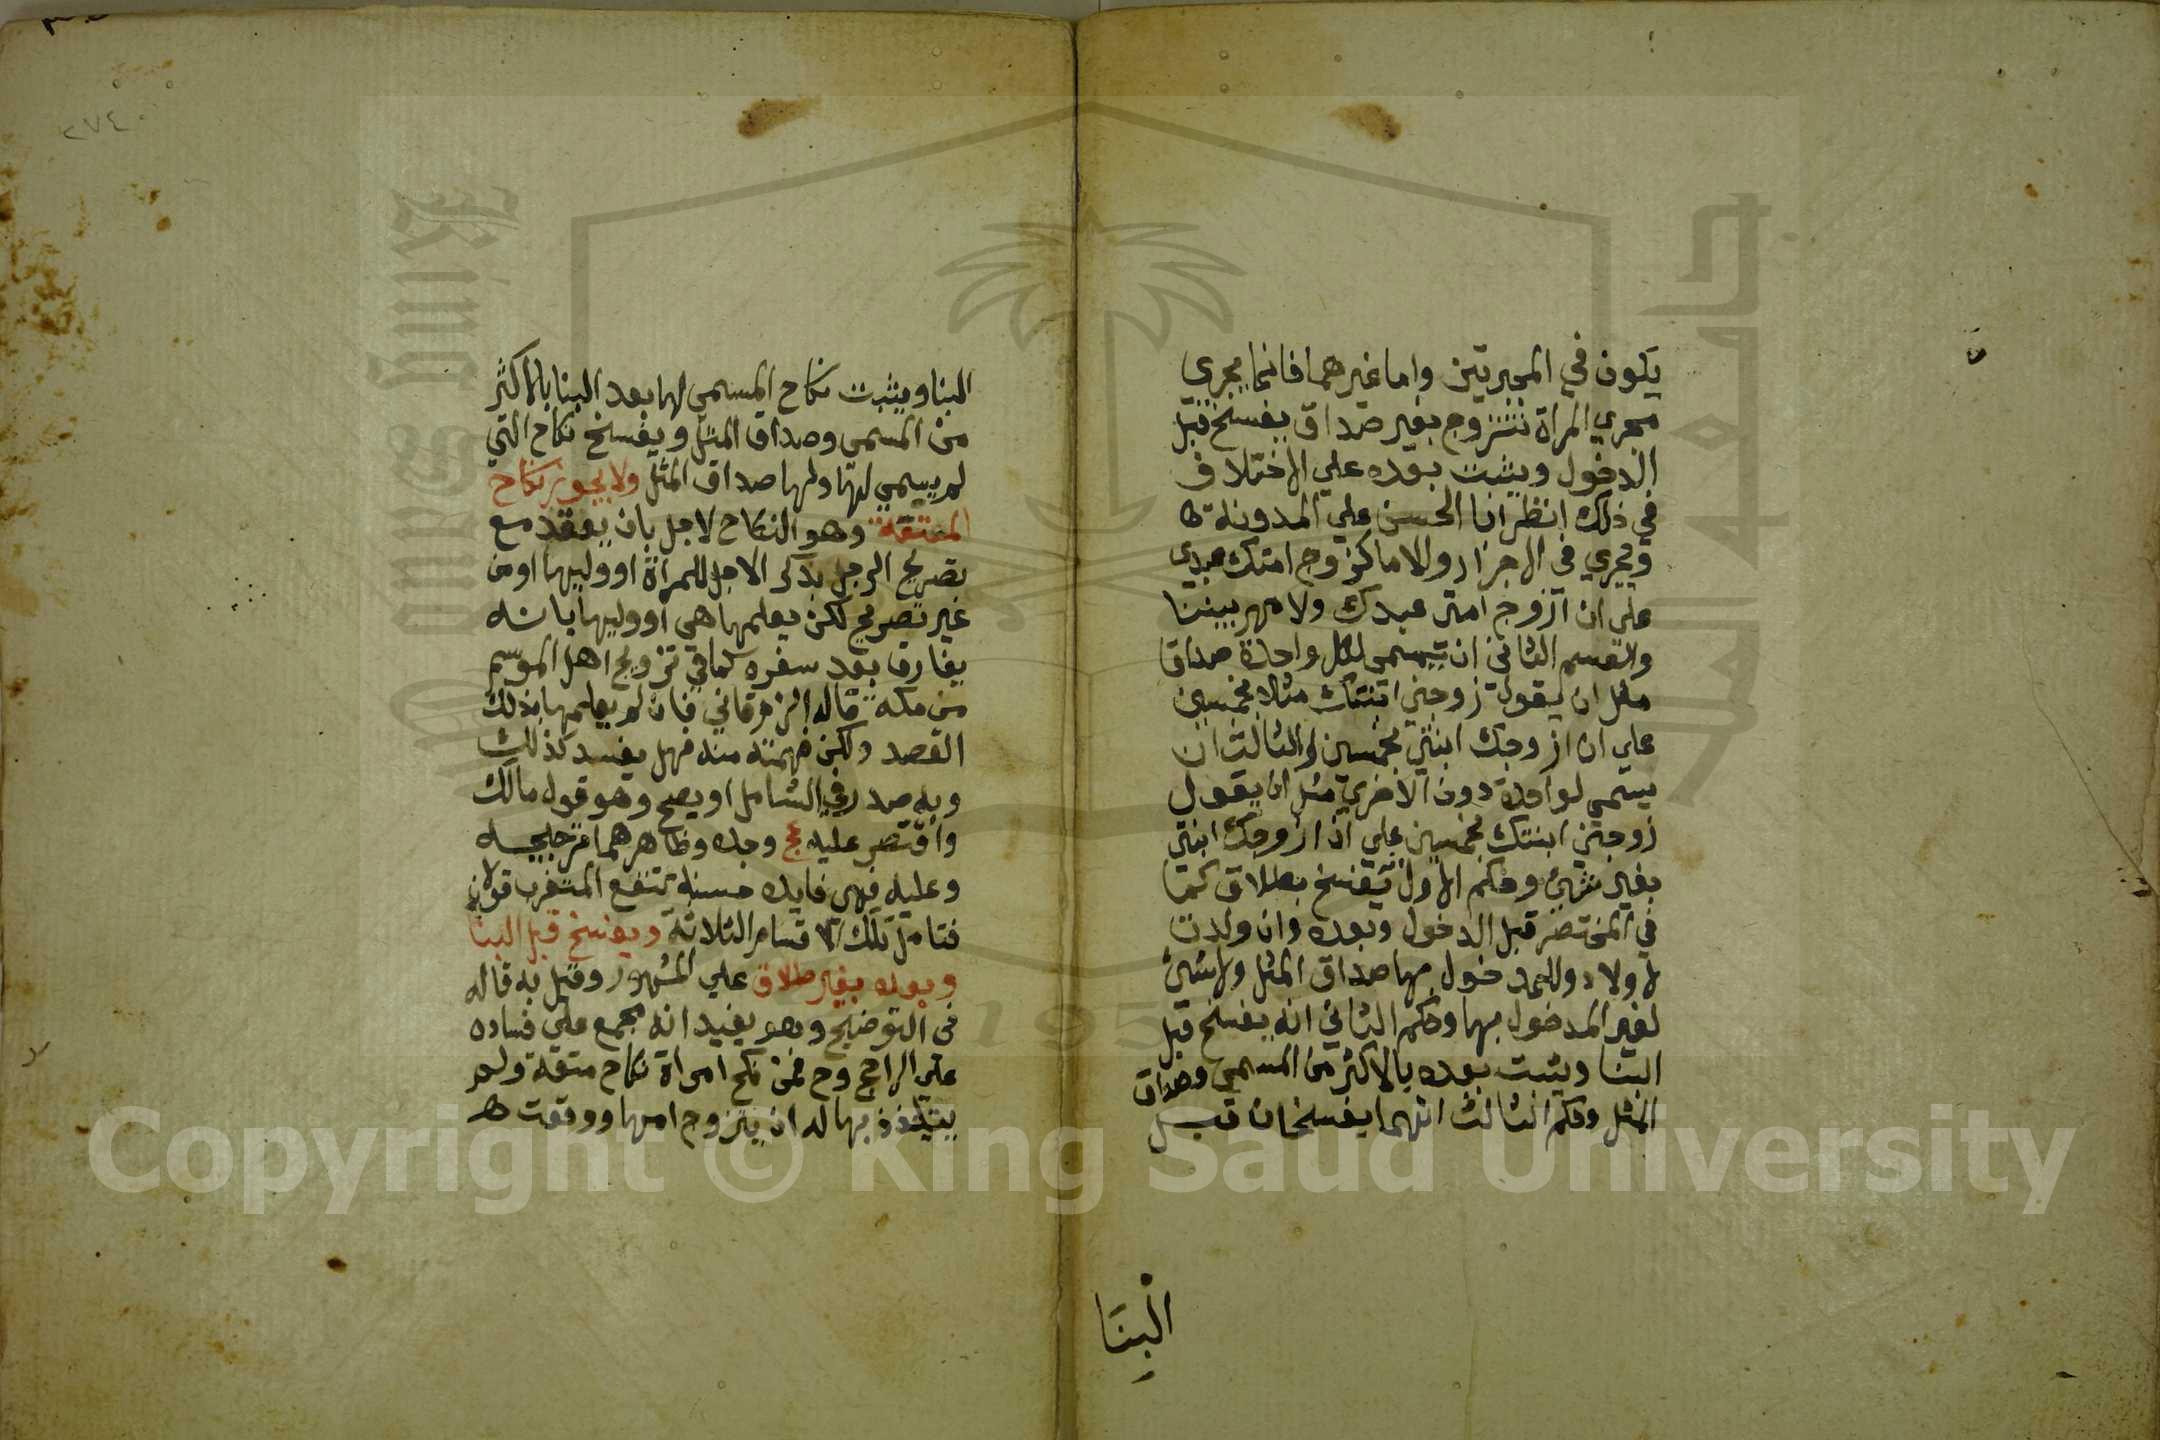 يكون في المجبرتين واما غيرهما فانما يجري
مجري المراة تتزوج بغير صداق يفسخ قبل
الدخول ويثبت بعده علي الاختلاف
في ذلك انظر ابا الحسن علي المدونة
ويجري في الاحرار والاماكزوج امتك عبدي
علي ان ازوج امتي عبدك ولا مهر بيننا
والقسم الثاني ان يسمي لكل واحدة صداق
مثل ان يقول زوجني ابنتك مثلا بخمسين
علي ان ازوجك ابنتي بخمسين والثالث ان
يسمي لواحدة دون الاخري مثل ان يقول
زوجني ابنتك بخمسين علي ان ازوجك ابنتي
بغير شيئ وحكم الاول يفسخ بطلاق كما
في المختصر قبل الدخول وبعده وان ولدت
الاولاد وللمدخول بها صداق المثل ولا شيئ
لغير المدخول بها وحكم الثاني انه يفسخ قبل
البنا ويثبت بعده بالاكثر من المسمي وصداق
المثل وحكم الثالث انهما يفسخان قبل
البنا
٢٧٤
البنا ويثبت نكاح المسمي لها بعد البنا بالاكثر
من المسمي وصداق المثل ويفسخ نكاح التي
لم يسمي لها ولها صداق المثل ولا يجوز نكاح
المتعة وهو النكاح لاجل بان يعقد مع
تصريح الرجل بذكر الاجل للمراة او وليها او من
غير تصريح لكن يعلمها هي او وليها بانه
يفارق بعد سفره كما في تزويج اهل الموسم
من مكة قاله الزرقاني فان لم يعلمها بذلك
القصد ولكن فهمته منه فهل يفسد كذلك
وبه صدر في الشامل او يصح وهو قول مالك
واقتصر عليه عج وجده وظاهرهما ترجيحه
وعليه فهي فايده حسنة تنفع المتغرب قولان
فتامل تلك الاقسام الثلاثة ويفسخ قبل البنا
وبعده بغير طلاق علي المشهور وقيل به قاله
في التوضيح وهو يفيد انه مجمع علي فساده
علي الراجح وح فمن نكح امراة نكاح متعة ولم
يتلذذ بها له ان يتزوج امها ووقعت
Copyright © King Saud University
جامعة الملك سعود
King Saud University
1957